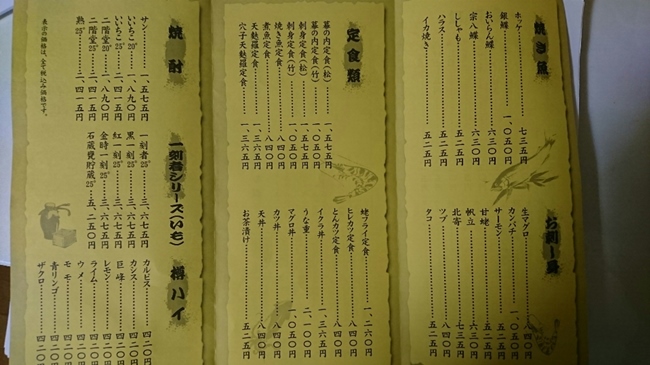 焼き魚
ホッケ 七三五円
銀鰈 一、〇五〇円
おいらん鰈 六三〇円
宗八鰈 六三〇円
ししゃも 五二五円
ハラス 五二五円
イカ焼き 五二五円
お刺し身
生マグロ 八四〇円
カンパチ 一、〇五〇円
サーモン 五二五円
甘蛯 五二五円
帆立 六三〇円
北寄 七三五円
ツブ 八四〇円
タコ 五二五円
定食類
幕の内定食(松) 一、五七五円
幕の内定食(竹) 一、〇五〇円
刺身定食(松) 一、五七五円
刺身定食(竹) 一、〇五〇円
焼き魚定食 八四〇円
煮魚定食 八四〇円
天麩羅定食 一、三六五円
穴子天麩羅定食 一、三六五円
蛯フライ定食 一、二六〇円
ヒレカツ定食 八四〇円
とんカツ定食 八四〇円
イクラ丼 一、三六五円
うな重 二、一〇〇円
マグロ丼 一、〇五〇円
カツ丼 八四〇円
天丼 八四〇円
お茶漬け 五二五円
焼酎
サン 一、五七五円
いいちこ20° 一、八九〇円
いいちこ25° 二、四一五円
二階堂20° 一、八九〇円
二階堂25° 二、四一五円
熟25° 二、四一五円
表示の価格は、全て税込み価格です。
一刻者シリーズ(いも)
一刻者25° 三、六七五円
黒一刻25° 三、六七五円
紅一刻25° 三、六七五円
金時一刻25° 三、六七五円
石蔵甕貯蔵25° 五、二五〇円
樽ハイ
カルピス 四二〇円
カシス 四二〇円
巨峰 四二〇円
レモン 四二〇円
ライム 四二〇円
ウメ 四二〇円
モモ 四二〇円
青リンゴ 四二〇円
ザクロ 四二〇円